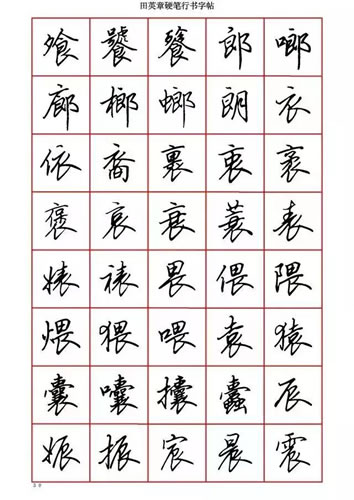 田英章硬笔行书字帖
飧 饕 餮 郎 啷
廊 榔 螂 朗 衣
依 裔 裹 衷 衮
褒 哀 衰 蓑 表
婊 裱 畏 偎 隈
煨 猥 喂 袁 猿
囊 囔 攮 蠹 辰
娠 振 宸 晨 震